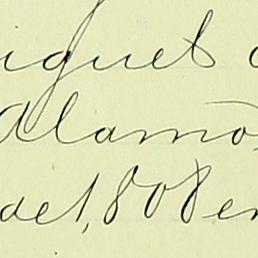 iguel
Alamo
de 1,808 en